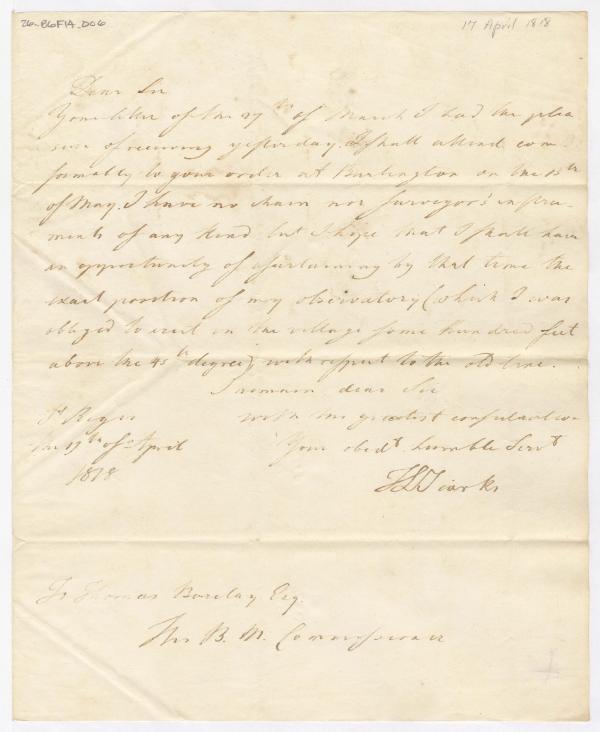 26-B6F14_D06
17 April 1818
Dear Sir
Your letter of the 27th of March I had the plea
sure of receiving yesterday. I shall attend con-
formably to your order at Burlington on the 15th
of May. I have no chain nor surveyor's instru-
ments of any kind but I hope that I shall have
an opportunity of ascertaining by that time the
exact position of my observatory (which I was
obliged to erect in the village some hundred feet
above the 45th degree) with respect to the old line.
I remain dear Sir
St Regis
with the greatest consideration
the 17th of April
Your obedt humble Servt
1818
JLTiarks
To Thomas Barclay Esq.
His B. M. Commissioner